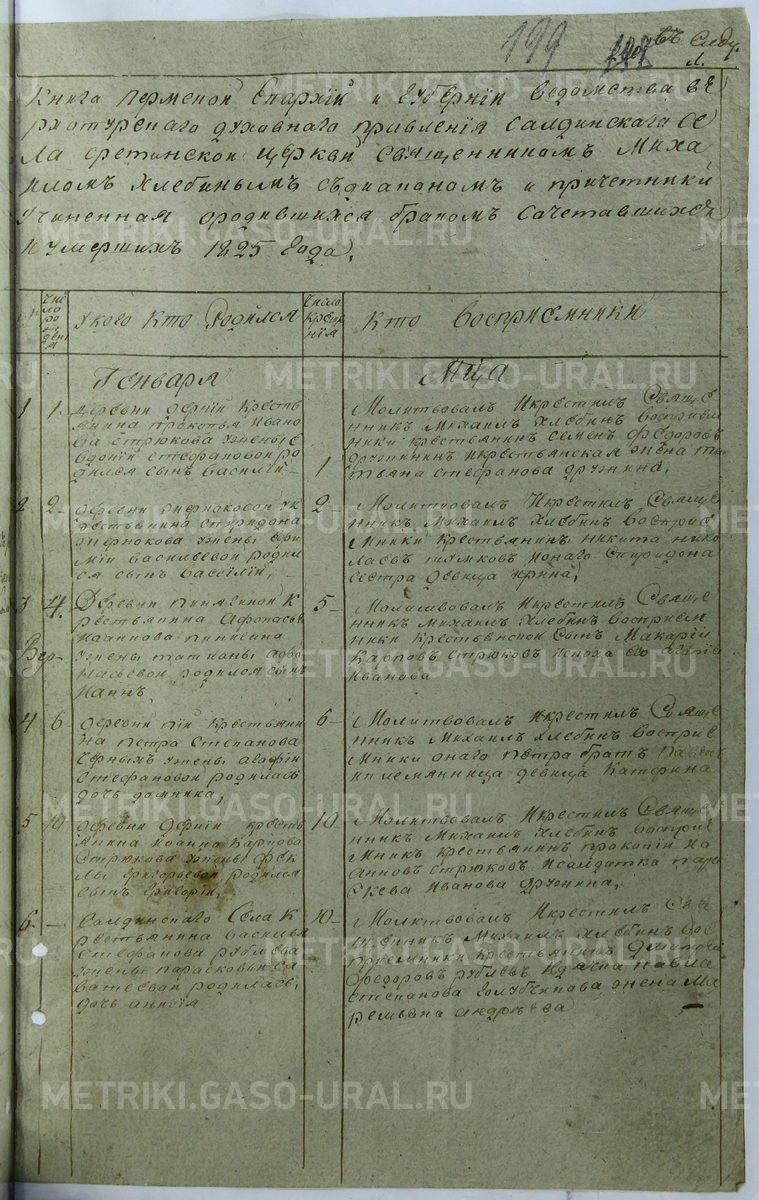 199
въ слѣду.
л.
Книга Пермской Епархїи и Губернїи ведомства ве
рхотурскаго духовнаго правленїя Салдинскаго се
ла сретенской церкви священникомъ Миха
иломъ Хлебинымъ съдиакономъ и причетники
учиненная ородившихся бракомъ сочетавшихся
и умершихъ 1825 года.
Число рожденїя
Укого кто родился
Число крещенїя
кто восприемники
Генваря
Мца
1
1.
деревни
кресть
янина прокопья Ивано
ва стрюкова жены е
вдокїи стефановой ро
дился сынъ василїй
1
Молитвовалъ Икрестилъ Свяще
нникъ Михаилъ Хлебинъ восприем
ники крестьянинъ семенъ федоровъ
дружининъ икрестьянская жена та
тьяна стефанова дружнина,
2
2
деревни
кр
естьянина спиридона
жены
мїи васильевой родил
ся сынъ василїй,
2
Молитвовалъ Икрестилъ Священ
никъ Михаилъ Хлебинъ восприе
мники крестьянинъ никита нико
лаевъ
ионаго спиридона
сестра девица ирина,
3
4.
Деревни пинягиной к
рестьянина Афонасья
Иоаннова пинягина
жены татианы
родился сынъ
Ианнъ,
Вер-
5
Молитвовалъ Икрестилъ Свяще
нникъ Михаилъ Хлебинъ восприем
ники крестьянской сынъ Макарїй
Карповъ стрюковъ
Иванова
4
6
деревни
крестьяни
на петра степанова
жены агафїи
стефановой родилась
дочь домника,
6
Молитвовалъ Икрестилъ Свяще
нникъ Михаилъ Хлебинъ восприе
мники онаго петра братъ павелъ
иплемянница девица катерина
5
10
деревни
кресть
янина иоанна карпова
стрюкова жены фек
лы григорьевой родился
сынъ григорїй,
10
Молитвовалъ Икрестилъ Свяще
нникъ Михаилъ Хлебинъ восприе
мникъ крестьянинъ прокопїй ио
анновъ стрюковъ исалдатка пара
скева Иванова дружнина,
6
—
Салдинскаго села к
рестьянина василья
стефанова рублева
жены парасковьи са
ватеевой родилась
дочь анисїя
10
Молитвовалъ Икрестилъ Свя
щенникъ Михаилъ Хлебинъ вос
приемники крестьянинъ
федоровъ рублевъ
павла
степанова голубчикова жена ма
ремьяна андреева
METRIKI.GASO-URAL.RU